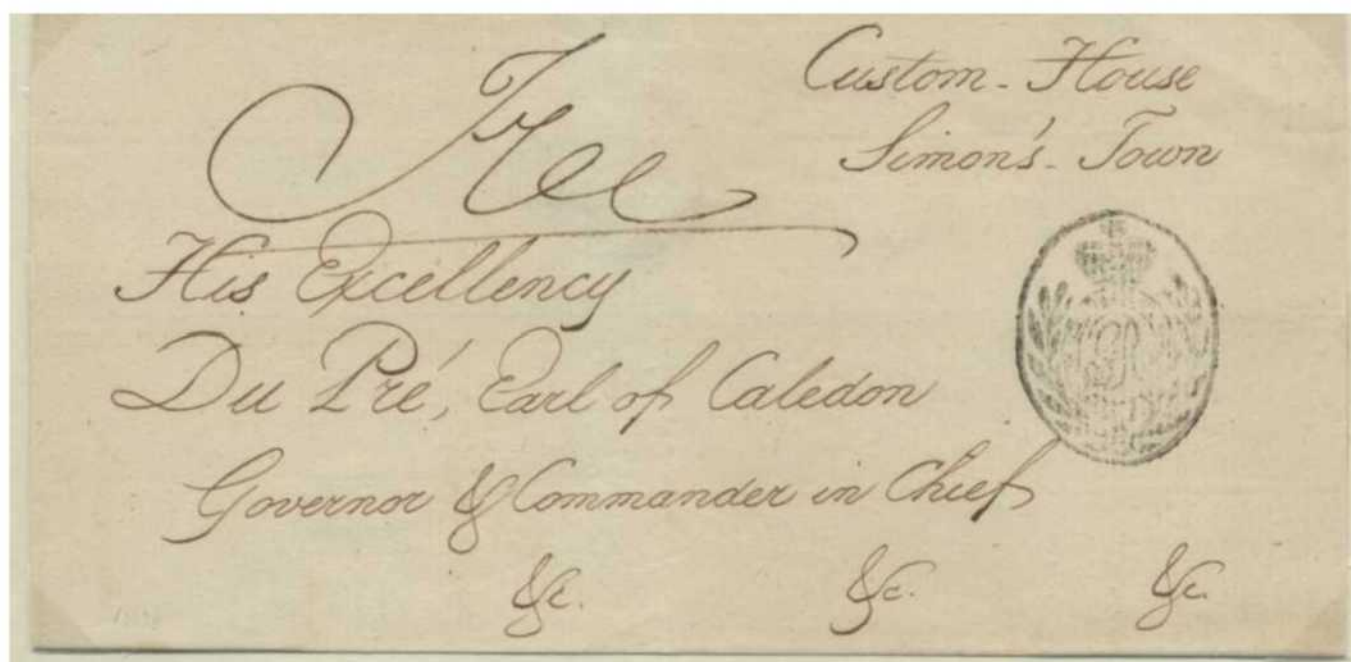 Free
Custom-House
Simon's-Town
His Excellency
Du Pré, Earl of Caledon
Governor & Commander in Chief
&c. &c. &c.